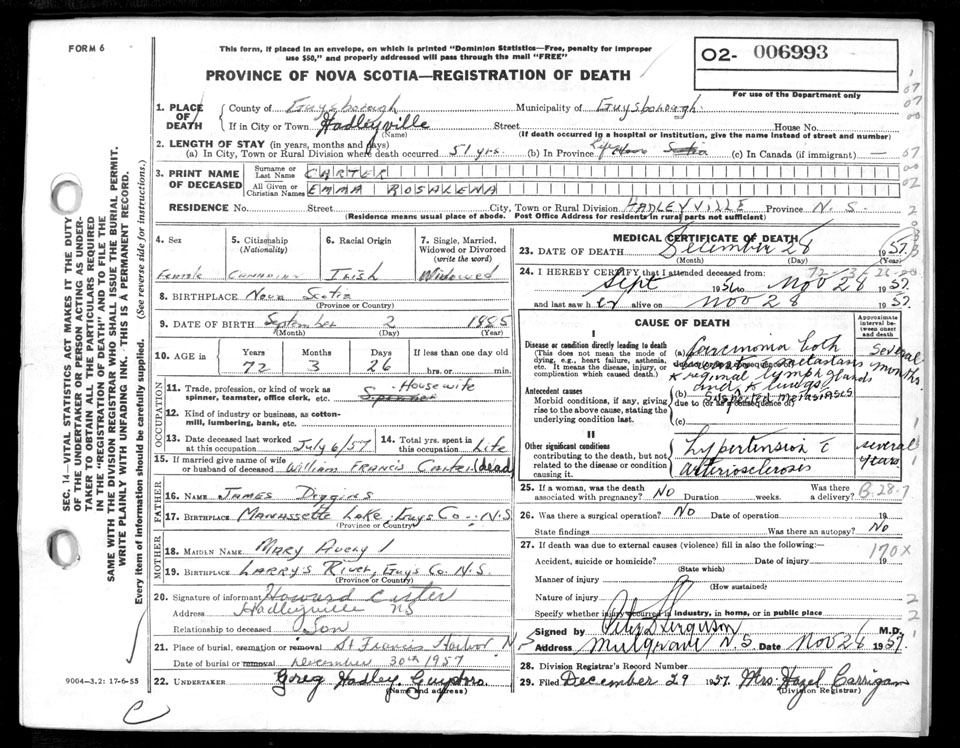 FORM 6
This form, if placed in an envelope, on which is printed "Dominion Statistics—Free, penalty for improper
use $50," and properly addressed will pass through the mail "FREE"
PROVINCE OF NOVA SCOTIA—REGISTRATION OF DEATH
02- 006993
For use of the Department only
1. PLACE OF DEATH
County of Guysborough Municipality of Guysborough
If in City or Town Hadleyville Street House No.
(Name) (If death occurred in a hospital or institution, give the name instead of street and number)
2. LENGTH OF STAY (in years, months and days)
(a) In City, Town or Rural Division where death occurred 51 yrs. (b) In Province Life (c) In Canada (if immigrant) —
3. PRINT NAME OF DECEASED
Surname or Last Name CARTER
All Given or Christian Names EMMA ROSALENA
RESIDENCE No. Street City, Town or Rural Division HADLEYVILLE Province N. S.
(Residence means usual place of abode. Post Office Address for residents in rural parts not sufficient)
4. Sex Female
5. Citizenship (Nationality) Canadian
6. Racial Origin Irish
7. Single, Married, Widowed or Divorced (write the word) Widowed
8. BIRTHPLACE Nova Scotia
(Province or Country)
9. DATE OF BIRTH September 2 1885
(Month) (Day) (Year)
10. AGE in Years Months Days If less than one day old
72 3 26 hrs. or min.
OCCUPATION
11. Trade, profession, or kind of work as spinner, teamster, office clerk, etc. Housewife
12. Kind of industry or business, as cotton-mill, lumbering, bank, etc.
13. Date deceased last worked at this occupation July 6/57
14. Total yrs. spent in this occupation Life
15. If married give name of wife or husband of deceased William Francis Carter (dead)
FATHER
16. NAME James Diggins
17. BIRTHPLACE Manassette Lake Guys Co - N.S.
(Province or Country)
MOTHER
18. MAIDEN NAME Mary Avery
19. BIRTHPLACE Larrys River, Guys Co. N.S.
(Province or Country)
20. Signature of informant Howard Carter
Address Hadleyville NS
Relationship to deceased Son
21. Place of burial, cremation or removal St Francis Harbor N.S
Date of burial or removal December 30th 1957
22. UNDERTAKER Greg Hadley. Guysboro
(Name and address)
MEDICAL CERTIFICATE OF DEATH
23. DATE OF DEATH December 28 1957
(Month) (Day) (Year)
72/3/26-20
24. I HEREBY CERTIFY that I attended deceased from:
Sept 1956 to Nov 28 1957
and last saw her alive on Nov 28 1957
CAUSE OF DEATH
Approximate interval between onset and death
I
Disease or condition directly leading to death
(This does not mean the mode of dying, e.g., heart failure, asthenia, etc. It means the disease, injury, or complication which caused death.)
(a) Carcinoma both breasts metastasis
to regional lymph glands
and to lungs
several months
Antecedent causes
Morbid conditions, if any, giving rise to the above cause, stating the underlying condition last.
(b) suspected metastases
due to (or as a consequence of)
(c)
II
Other significant conditions
contributing to the death, but not related to the disease or condition causing it.
Hypertension c
arteriosclerosis
several years
25. If a woman, was the death associated with pregnancy? No Duration weeks. Was there a delivery?
B-28-7
26. Was there a surgical operation? No Date of operation 19
State findings Was there an autopsy? No
27. If death was due to external causes (violence) fill in also the following:—
170X
Accident, suicide or homicide? Date of injury 19
(State which)
Manner of injury
(How sustained)
Nature of injury
Specify whether injury occurred in industry, in home, or in public place
Signed by Peter S Ferguson M.D.
Address Mulgrave N.S. Date Nov 28 1957.
28. Division Registrar's Record Number
29. Filed December 29 1957. Mrs. Hazel Carrigan
(Division Registrar)
SEC. 14—VITAL STATISTICS ACT MAKES IT THE DUTY
OF THE UNDERTAKER OR PERSON ACTING AS UNDER-
TAKER TO OBTAIN ALL THE PARTICULARS REQUIRED
IN THE "REGISTRATION OF DEATH" AND TO FILE THE
SAME WITH THE DIVISION REGISTRAR WHO SHALL ISSUE THE BURIAL PERMIT.
WRITE PLAINLY WITH UNFADING INK. THIS IS A PERMANENT RECORD.
Every item of information should be carefully supplied. (See reverse side for instructions.)
9004-3.2: 17-6-55
C